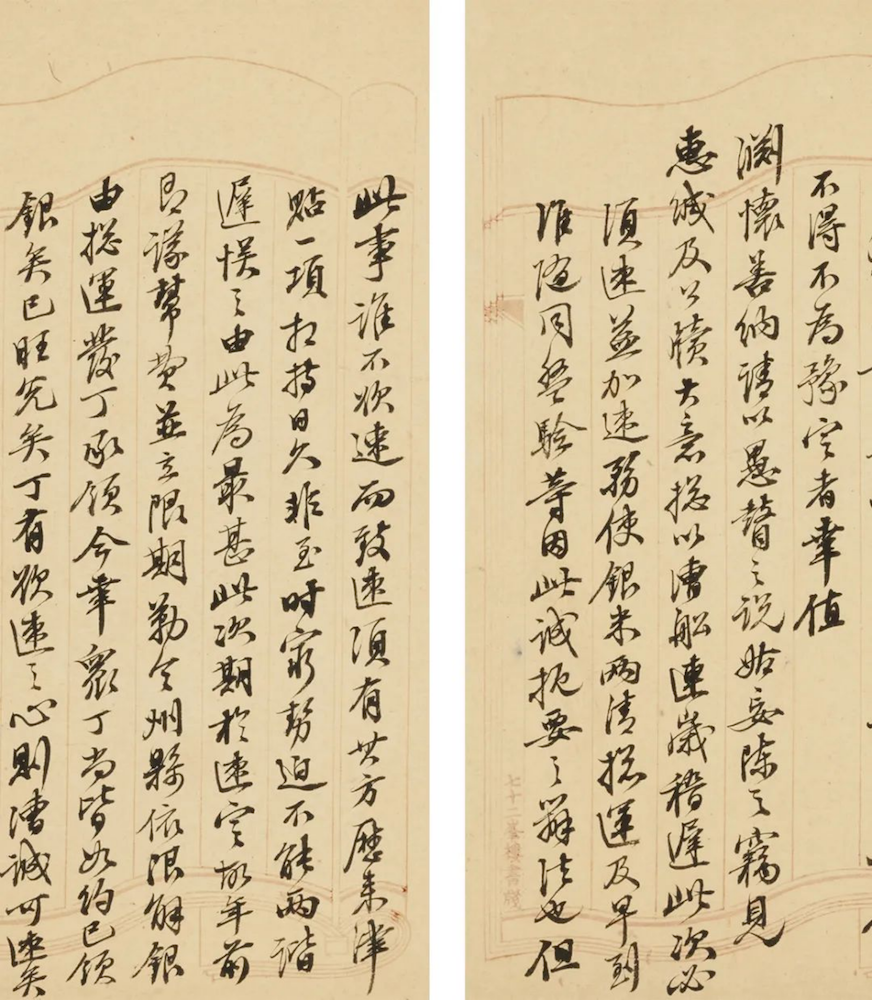 不得不為豫定者幸值
淵懷善納請以愚瞽之說姑妄陳之竊見
惠緘及公牘大意總以漕船連歲稽遲此次必
須速益加速務使銀米兩清總運及早到
淮隨同盤驗等因此誠扼要之辦法也但
七十二峯樓書牋
此事誰不欲速而致速須有其方歷來津
貼一項扛持日久非至時窮勢迫不能兩諧
遲悞之由此為最甚此次期於速定故年前
即議幫費並立限期勒令州縣依限解銀
由總運發丁承領今幸眾丁尚皆如約已領
銀矣已旺兌矣丁有欲速之心則漕誠可速矣